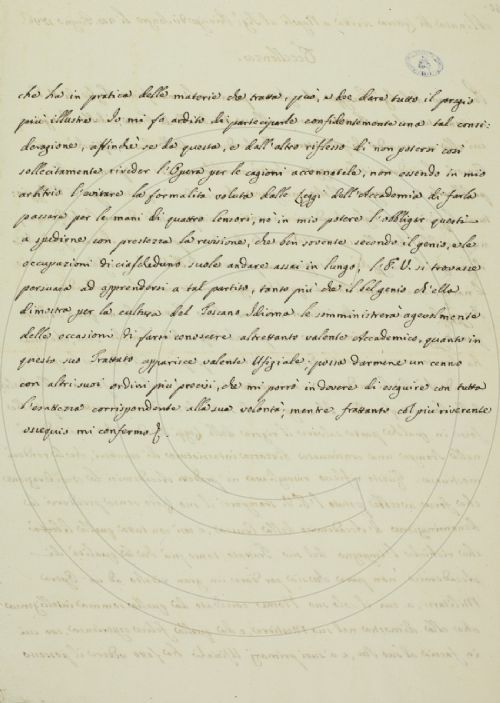 che ha in pratica delle materie che tratta, può, e dee dare tutto il pregio
più illustre. Io mi fo ardito di parteciparle confidentemente una tal consi-
derazione, affinchè se da questa, e dall'altro riflesso di non potersi così
sollecitamente riveder l'Opera per le cagioni accennatele, non essendo in mio
arbitrio l'evitare la formalità voluta dalle Leggi dell'Accademia di farla
passare per le mani di quattro Censori, nè in mio potere l'obbligar questi
a spedirne con prestezza la revisione, che ben sovente secondo il genio, e le
occupazioni di ciascheduno suole andare assai in lungo, l'E. V. si trovasse
persuasa ad apprendersi a tal partito, tanto più che il bel genio ch'ella
dimostra per la cultura del Toscano Idioma le somministrerà agevolmente
delle occasioni di farsi conoscere altrettanto valente Accademico, quanto in
questo suo Trattato apparisce valente Ufiziale; possa darmene un cenno
con altri suoi ordini più precisi, che mi porrò in dovere di eseguire con tutta
l'esattezza corrispondente alla sua volontà; mentre frattanto col più riverente
ossequio mi confermo